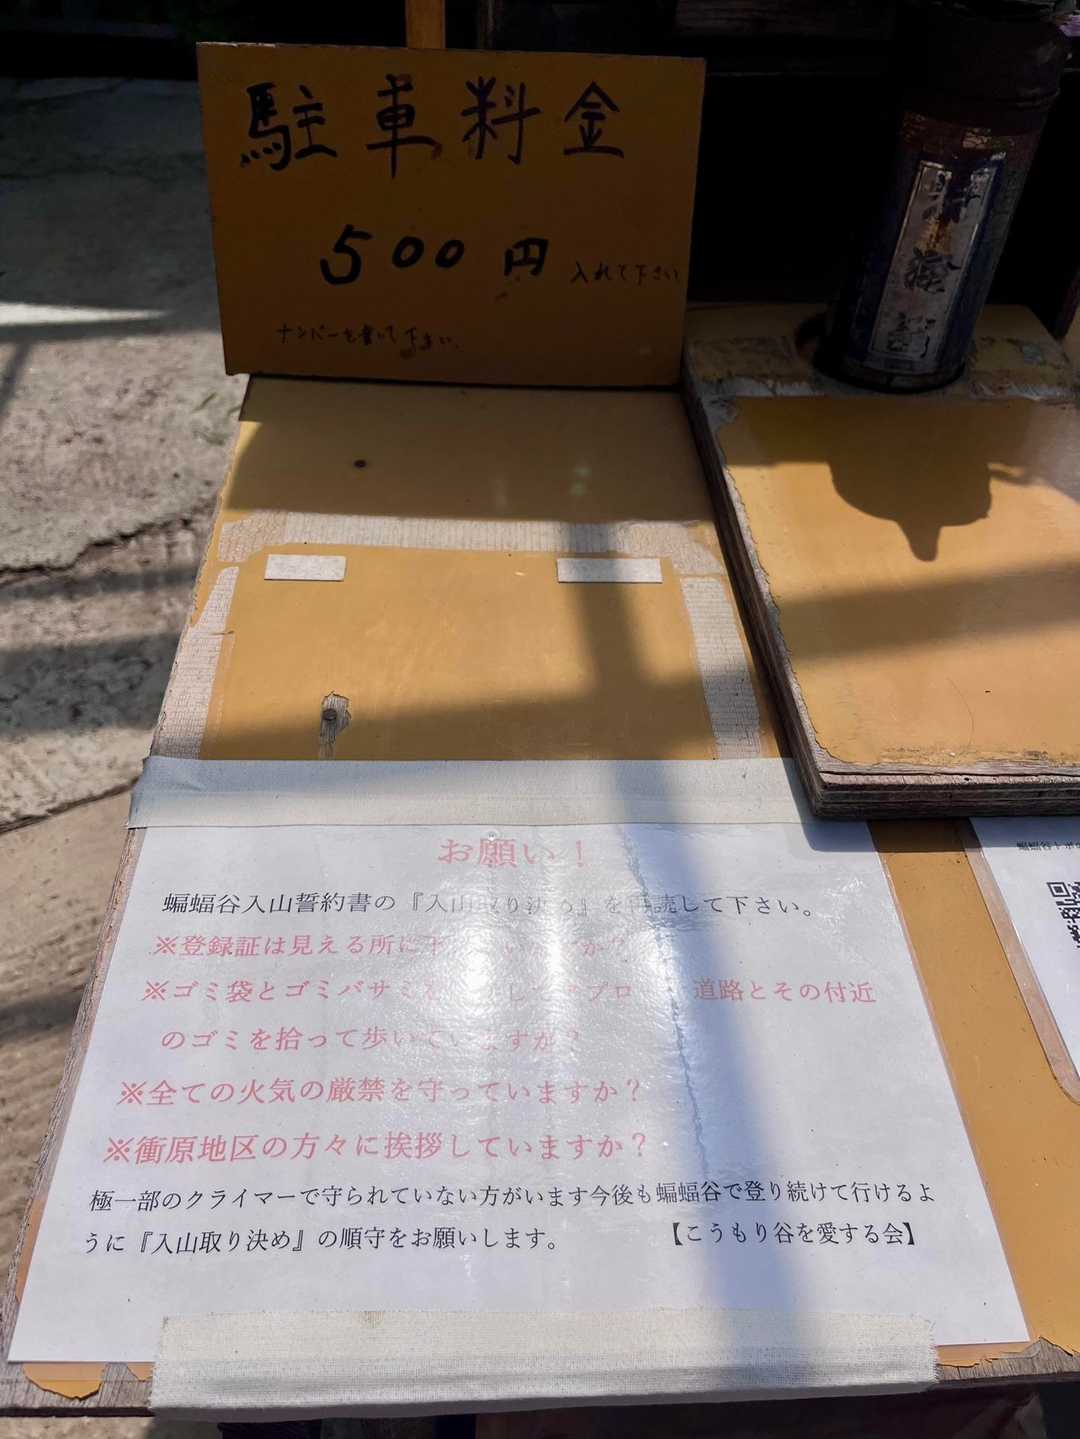 駐車料金
500円 入れて下さい
ナンバーを書いて下さい。
お願い！
蝙蝠谷入山誓約書の『入山取り決め』を再読して下さい。
※登録証は見える所に か？
※ゴミ袋とゴミバサミ プロ 道路とその付近
のゴミを拾って歩いて ますか？
※全ての火気の厳禁を守っていますか？
※衝原地区の方々に挨拶していますか？
極一部のクライマーで守られていない方がいます今後も蝙蝠谷で登り続けて行けるよ
うに『入山取り決め』の順守をお願いします。 【こうもり谷を愛する会】
蝙蝠谷トポ